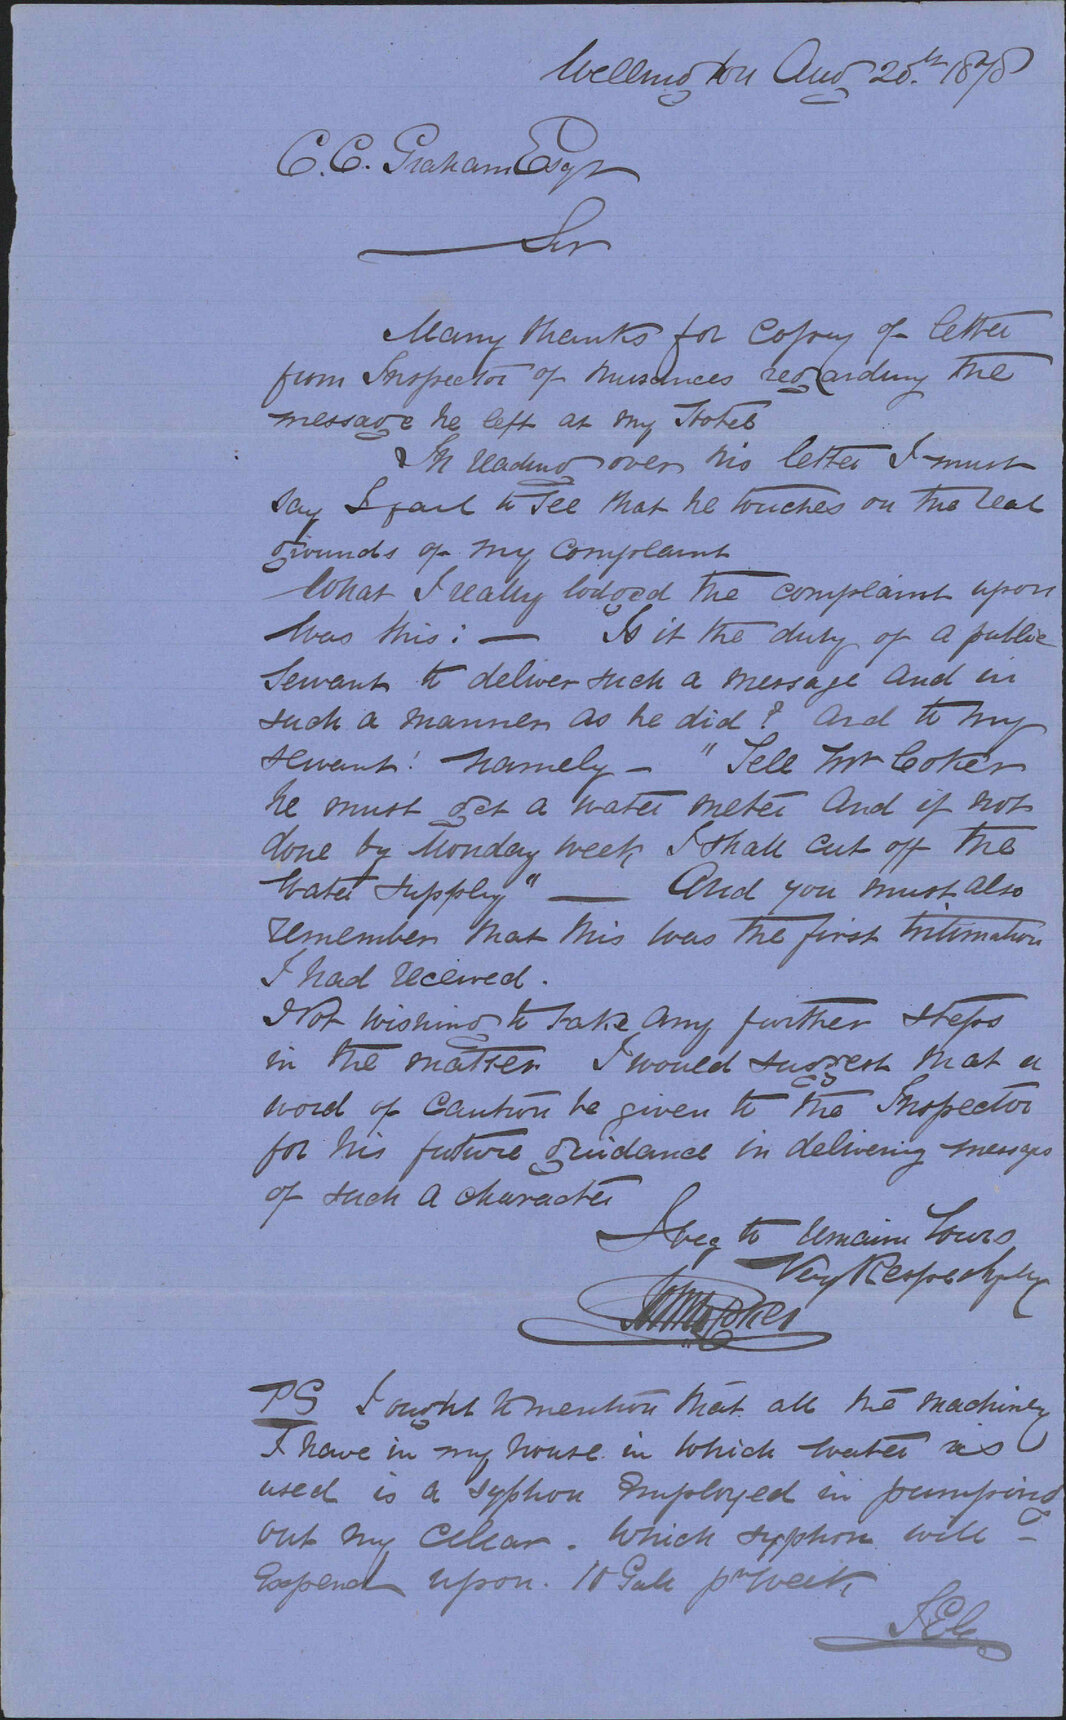 Wellington Aug 20th 1878
C. C. Graham Esqr
Sir
Many thanks for Copy of letter
from Inspector of Nuisances regarding the
message he left at my Hotel
In reading over his letter I must
say I fail to see that he touches on the real
grounds of my complaint
What I really lodged the complaint upon
was this: — Is it the duty of a public
servant to deliver such a message and in
such a manner as he did? And to my
servant! namely — "Tell Mr Coker
he must get a water meter and if not
done by Monday week I shall cut off the
water supply" — And you must also
remember that this was the first intimation
I had received.
Not wishing to take any further steps
in the matter I would suggest that a
word of caution be given to the Inspector
for his future guidance in delivering messages
of such a character
I beg to remain Yours
Very Respectfully
Coker
PS I ought to mention that all the machinery
I have in my house in which water is
used is a syphon employed in pumping
out my cellar. Which syphon will
Expend upon. 10 Gals pr week
JEC